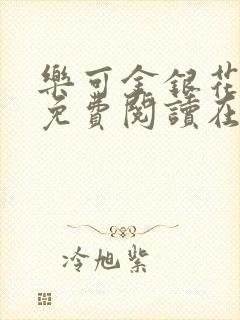 樂可金銀花
免費閱讀在
冷旭紫